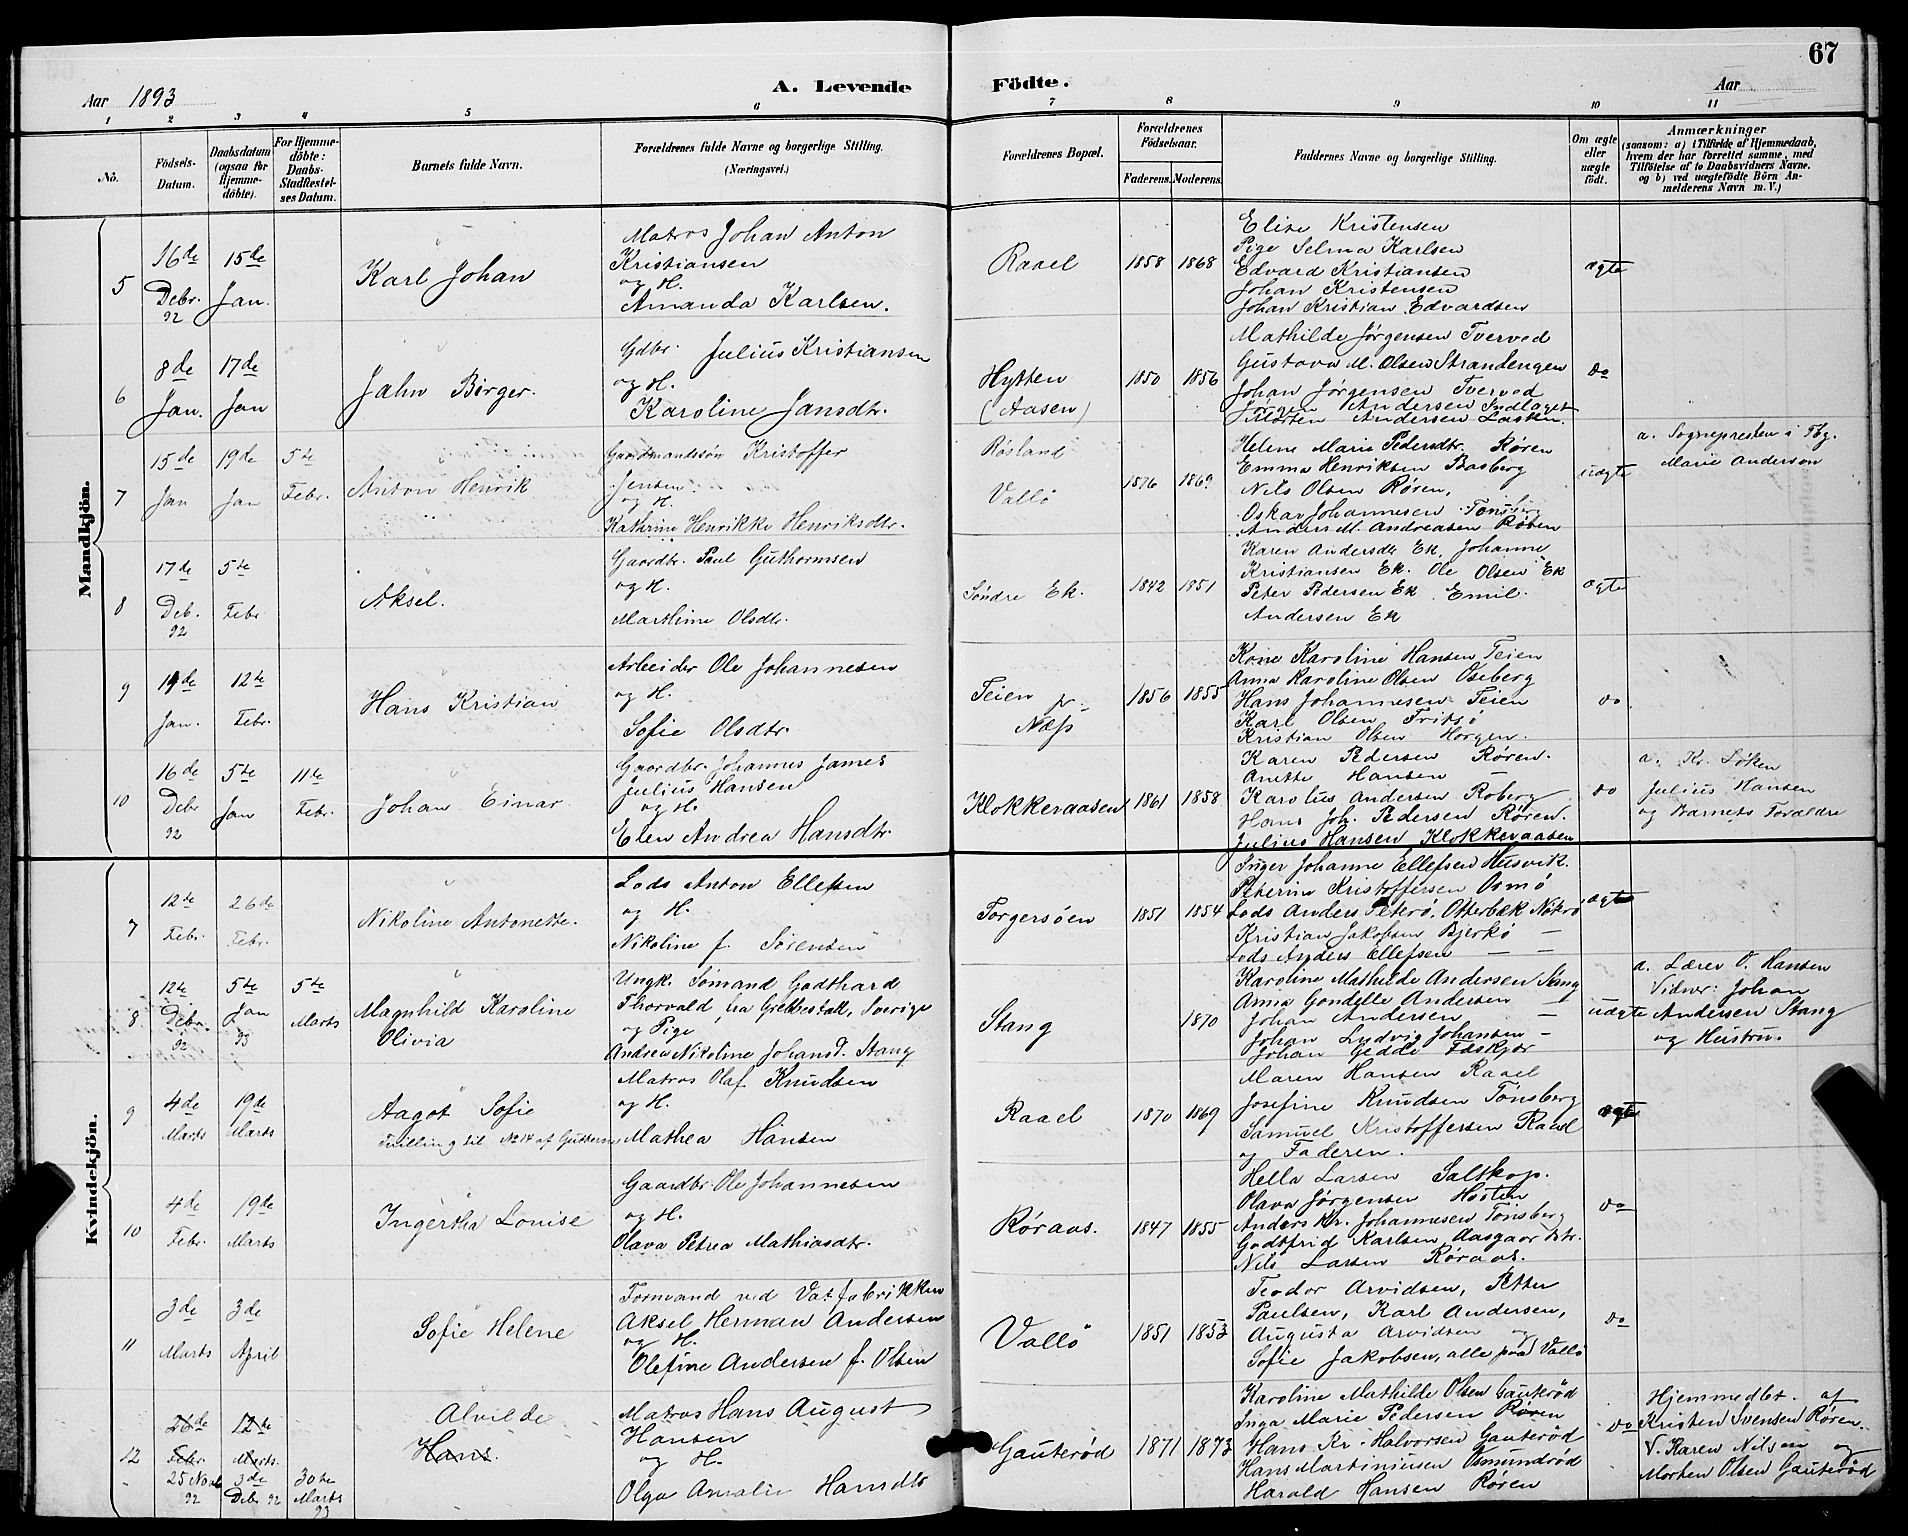 67
Aar 1893
A. Levende Födte.
Aar
1 2 3 4 5 6 7 8 9 10 11
No.
Födsels-Datum.
Daabsdatum (ogsaa for Hjemmedöbte).
For Hjemmedöbte: Daabs-Stadfestelses Datum.
Barnets fulde Navn.
Forældrenes fulde Navne og borgerlige Stilling. (Næringsvei.)
Forældrenes Bopæl.
Forældrenes Födselsaar.
Faderens. Moderens.
Faddernes Navne og borgerlige Stilling.
Om ægte eller uægte födt.
Anmærkninger
(saasom: a) i Tilfælde af Hjemmedaab, hvem der har forrettet samme, med Tilföielse af to Daabsvidners Navne. og b) ved uægtefödte Börn Anmelderens Navn m. V.)
Mandkjön.
5
16de Debr. 92
15de Jan.
Karl Johan
Matros Johan Anton
Kristiansen
og H.
Amanda Karlsen.
Raael
1858 1868
Elise Kristensen
Pige Selma Karlsen
Edvard Kristiansen
Johan Kristensen
Johan Kristian Edvardsen
ægte
6
8de Jan.
17de Jan
Jahn Birger.
Gdbr. Julius Kristiansen
og H.
Karoline Jansdtr.
Hytten
(Aasen)
1850 1856
Mathilde Jørgensen Tverved
Gustava M. Olsen Strandengen
Johan Jørgensen Tverved
Jørgen Andersen Indlaget
Morten Andersen Lasken.
do
7
15de Jan
19de Jan
5te Febr.
Anton Henrik
Gaardmandssøn Kristoffer
Jensen
og H.
Kathrine Henrikke Henriksdtr.
Røsland
Vallö
1876 1869
Helene Marie Pedersdtr. Røren
Emma Henriksen Basberg
Nils Olsen Røren,
Oskar Johannesen Tönsberg
Anders M. Andreasen Røren
uægte
a. Sognepresten i Tbg.
Marie Anderson
8
17de Deb. 92
5te Febr
Aksel.
Gaardbr. Paul Guthormsen
og H.
Marthine Olsdtr.
Søndre Ek.
1842 1851
Karen Andersdtr Ek, Johanne
Kristiansen Ek. Ole Olsen Ek
Peter Pedersen Ek. Emil
Andersen Ek
ægte
9
19de Jan.
12te Febr.
Hans Kristian
Arbeider Ole Johannesen
og H.
Sofie Olsdtr.
Teien pr.
Næss
1856 1855
Kone Karoline Hansen Teien
Anna Karoline Olsen Oseberg
Hans Johannesen Teien
Karl Olsen Fritsö
Kristian Olsen Horgen.
do
10
16de Debr 92
5te Jan
11te Febr.
Johan Einar
Gaardbr. Johannes James
Julius Hansen
og H.
Elen Andrea Hansdtr.
Klokkeraasen
1861 1858
Karen Pedersen Røren.
Anette Hansen
Karolus Andersen Roberg
Hans Joh. Pedersen Røren.
Julius Hansen Klokkeraasen
do
a. Kr. Løken
Julius Hansen
og Barnets Forældre
Kvindekjön.
7
12te Febr.
26de Febr.
Nikoline Antonette.
Lods Anton Ellefsen
og H.
Nikoline f. Sørensen
Torgersøen
1851 1854
Inger Johanne Ellefsen Husvik.
Peterine Kristoffersen Osmö
Lods Anders Peterö, Otterbæk Nøterø
Kristian Jakobsen Bjerkö —
Lods Anders Ellefsen —
ægte
8
12te Debr. 92
5te Jan 93
5te Marts
Magnhild Karoline
Olivia
Ungk. Sømand Godthard
Thorvald, fra Grebbestad, Sverige
og Pige
Andrea Nikoline Johansd. Stang
Stang
1870
Karoline Mathilde Andersen Stang
Anna Gondelle Andersen —
Johan Andersen —
Johan Ludvig Johansen —
Johan Gedde Feskjør
uægte
a. Lærer O. Hansen
Vidner: Johan
Andersen Stang
og Hustru.
9
4de Marts
19de Marts
Aagot Sofie
Tvilling til No 14 af Guttene
Matros Olaf Knudsen
og H.
Mathea Hansen
Raael
1870 1869
Maren Hansen Raael
Josefine Knudsen Tönsberg
Samuel Kristoffersen Raael
og Faderen.
ægte
10
4de Febr.
19de Marts
Ingertha Louise
Gaardbr. Ole Johannesen
og H.
Olava Petrea Mathiasdtr.
Røraas.
1847 1855
Hella Larsen Saltkop.
Olava Jørgensen Hosten
Anders Kr. Johannesen Tönsberg
Godtfrid Karlsen, Aasgaardstr.
Nils Larsen Røraas.
do
11
3de Marts
3de April
Sofie Helene
Formand ved Vatfabrikken
Aksel Herman Andersen
og H.
Olefine Andersen f. Olsen
Vallö
1851 1853
Teodor Arvidsen, Petter
Paulsen, Karl Andersen,
Augusta Arvidsen og
Sofie Jakobsen, alle paa Vallö
do
12
26de Febr.
12te Marts.
25 Novbr 92
3de Debr 92
30te Marts 93
Alvilde
Hans
Matros Hans August
Hansen
og H.
Olga Amalie Hansdtr
Gauterød
1871 1873
Karoline Mathilde Olsen Gauterød
Inga Marie Pedersen Røren
Hans Kr. Halvorsen Gauterød
Hans Martiniusen Osmundrød
Harald Hansen Røren
do
Hjemmedbt. af
Kristen Svensen Røren.
V. Karen Nilsen og
Morten Olsen Gauterød